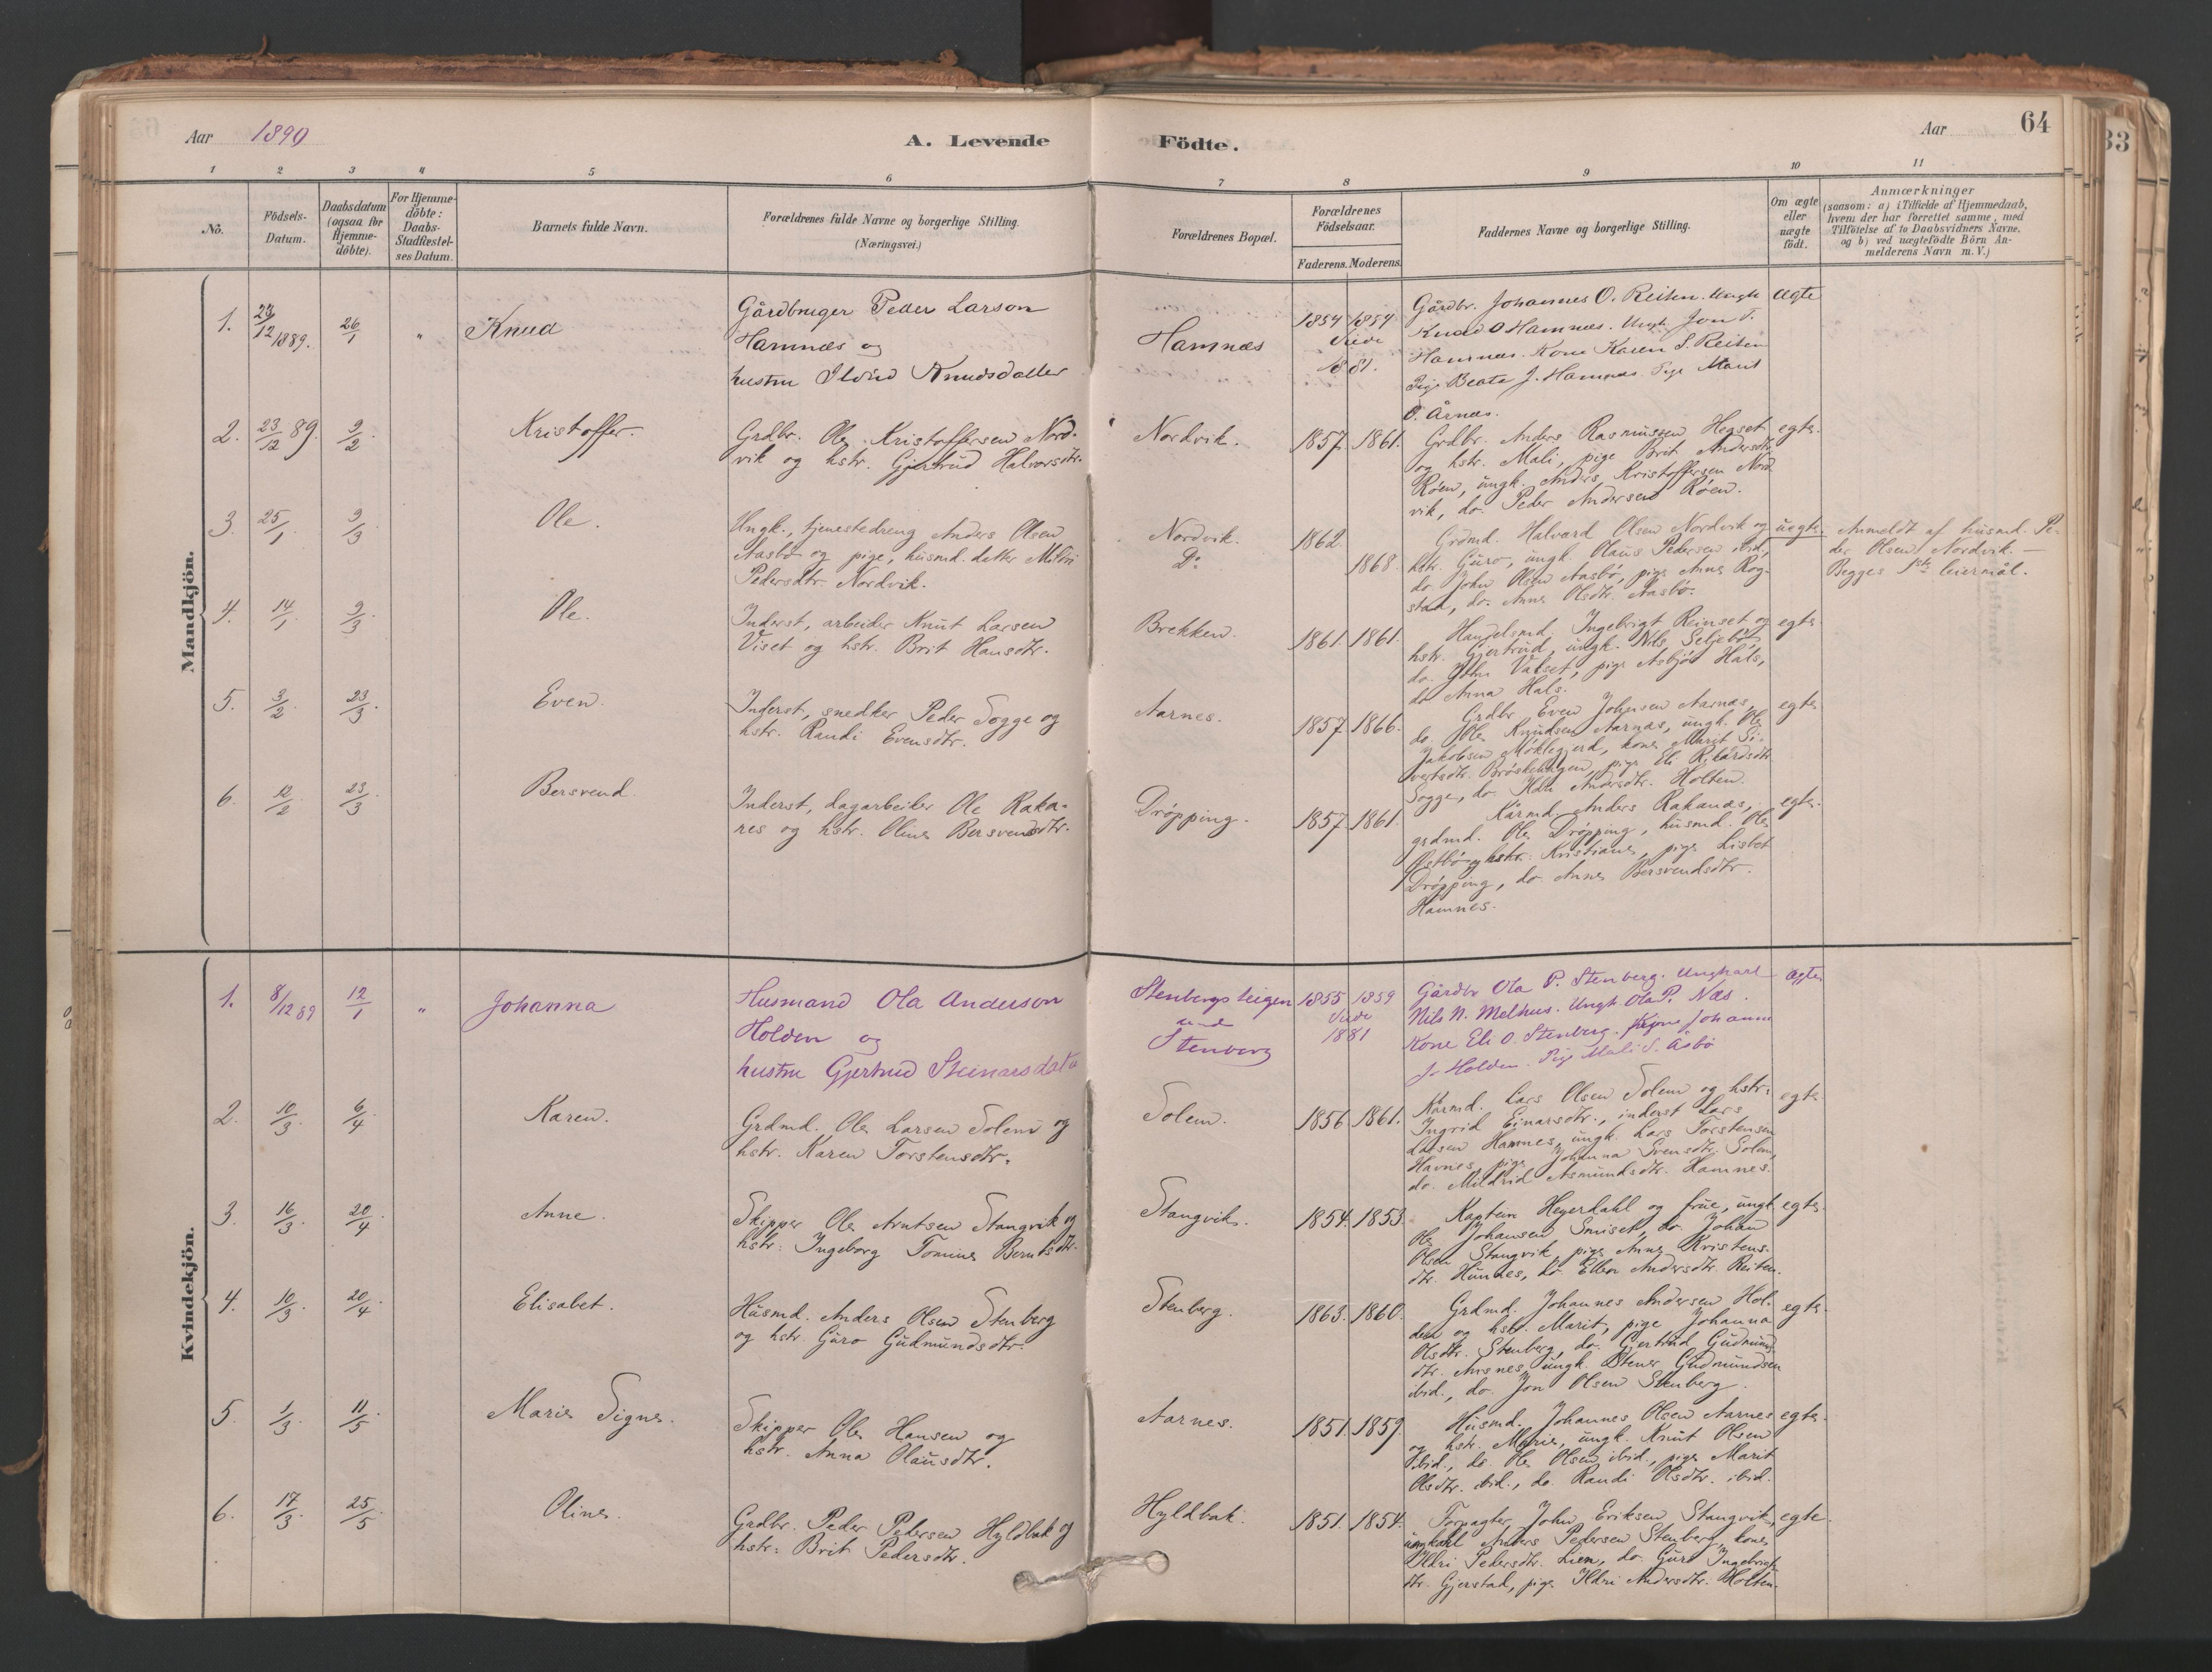 Aar 1890
A. Levende Födte.
Aar
64
1 2 3 4 5 6 7 8 9 10 11
No.
Födsels-Datum.
Daabsdatum (ogsaa for Hjemme-döbte).
For Hjemme-döbte: Daabs-Stadfæstel-ses Datum.
Barnets fulde Navn.
Forældrenes fulde Navne og borgerlige Stilling. (Næringsvei.)
Forældrenes Bopæl.
Forældrenes Födselsaar.
Faderens. Moderens.
Faddernes Navne og borgerlige Stilling.
Om ægte eller uægte födt.
Anmærkninger
(saasom: a) i Tilfælde af Hjemmedaab,
hvem der har forrettet samme, med
Tilföielse af to Daabsvidners Navne,
og b) ved uægtefödte Börn An-
melderens Navn m. V.)
Mandkjön.
1. 23/12 1889. 26/1 " Knud
Gårdbruger Peder Larson
Hamnæs og
hustru Ildrid Knudsdatter
Hamnæs
1854 1854
Viede
1881.
Gårdbr. Johannes O. Reiten. Ungk
Knud O Hamnæs. Ungk Jon T.
Hamnæs. Kone Karen S. Reiten
Pige Beate J. Hamnæs. Pige Marit
O. Årnæs.
ægte
2. 23/12 89. 9/2. Kristoffer.
Grdbr. Ole Kristoffersen Nord-
vik og hstr. Gjertrud Halvorsdtr.
Nordvik.
1857. 1861.
Grdbr. Anders Rasmussen Hegset
og hstr. Mali, pige Brit Andersdtr.
Röen, ungk. Anders Kristoffersen Nord
vik, do. Peder Andersen Röen.
egte.
3. 25/1 9/3 Ole.
Ungk., tjenestedreng Anders Olsen
Aasbö og pige, husmd. datter Mildri
Pedersdtr. Nordvik.
Nordvik.
Do
1862.
1868.
Grdmd. Halvard Olsen Nordvik og
hstr. Guro, ungk Olaus Pedersen ibid,
do John Olsen Aasbö, pige Anne Rog-
stad, do. Anne Olsdtr. Aasbö.
uegte.
Anmeldt af husmd. Pe-
der Olsen Nordvik. —
Begges 1ste leiermål.
4. 14/1 9/3. Ole.
Inderst, arbeider Knut Larsen
Viset og hstr. Brit Hansdtr.
Brekken.
1861. 1861.
Handelsmd. Ingebrigt Reinset og
hstr. Gjertrud, ungk. Nils Seljebö
do. John Valset, pige Asbjör Hals,
do Anna Hals.
egte
5. 3/2. 23/3. Even.
Inderst, snedker Peder Sogge og
hstr. Randi Evensdtr.
Aarnes.
1857. 1866.
Grdbr Even Johnsen Aarnes,
do Ole Knudsen Aarnes, ungk. Ole
Jakobsen Möklegjerd, kone Marit Si-
vertsdtr. Bröskehaugen, pige Eli Rikardsdtr
Sogge, do. Ildri Andersdtr. Holten.
egte
6. 12/2. 23/3. Bersvend.
Inderst, dagarbeider Ole Raka-
nes og hstr. Oline Bersvendsdtr.
Dröpping.
1857. 1861.
Kårmd. Anders Rakanes,
grdmd. Ole Dröpping, husmd. Ole
Östbö og hstr. Kristiane, pige Lisbet
Dröpping, do. Anne Bersvendsdtr.
Hamnes.
egte.
Kvindekjön.
1. 8/12 89 12/1 " Johanna
Husmand Ola Anderson
Holden og
hustru Gjertrud Steinarsdatr
Stenbergsteigen
und
Stenberg
1855 1859
Viede
1881
Gårdbr Ola P. Stenberg. Ungkarl
Nils N. Melhus. Ungk Ola P. Næs.
Kone Eli O. Stenberg. Pige Johanne
J. Holden. Pige Mali S. Åsbö
ægte
2. 10/3. 6/4. Karen.
Grdmd. Ole Larsen Solem og
hstr. Karen Torstensdtr.
Solem.
1856. 1861.
Kårmd. Lars Olsen Solem og hstr.
Ingrid Einarsdtr., inderst Lars
Larsen Hamnes, ungk. Lars Torstensen
Havnes, pige Johanna Svensdtr. Solem,
do. Mildrid Asmundsdtr. Hamnes.
egte
3. 16/3. 20/4. Anne.
Skipper Ole Arntsen Stangvik og
hstr. Ingeborg Tomine Berntsdtr.
Stangvik.
1854. 1853.
Kaptein Heyerdahl og frue, ungk
Ole Johansen Smiset, do. Johan
Olsen Stangvik, pige Anne Kristens-
dtr. Hunnes, do. Ellen Andersdtr. Reiten.
egte.
4. 10/3. 20/4. Elisabet.
Husmd. Anders Olsen Stenberg
og hstr. Guro Gudmundsdtr.
Stenberg.
1863. 1860.
Grdmd. Johannes Andersen Hol-
den og hstr. Marit, pige Johanna
Olsdtr. Stenberg, do. Gjertrud Gudmunds
dtr. Aasnes, ungk. Stener Gudmundsen
ibid., do. Jon Olsen Stenberg.
egte.
5. 1/3. 11/5. Marie Signe.
Skipper Ole Hansen og
hstr. Anna Olausdtr.
Aarnes.
1851. 1859.
Husmd. Johannes Olsen Aarnes
og hstr. Marie, ungk. Knut Olsen
ibid., do Ole Olsen ibid., pige Marit
Olsdtr. ibid., do. Randi Olsdtr. ibid.
egte.
6. 17/3. 25/5. Oline.
Grdbr. Peder Pedersen Hyldbak og
hstr. Brit Pedersdtr.
Hyldbak.
1851. 1854.
Forpagter John Eriksen Stangvik,
ungkarl Anders Pedersen Stenberg, kone
Ildri Pedersdtr. Lien, do. Guro Ingebrigts
dtr. Gjerstad, pige Ildri Andersdtr. Holten.
egte.